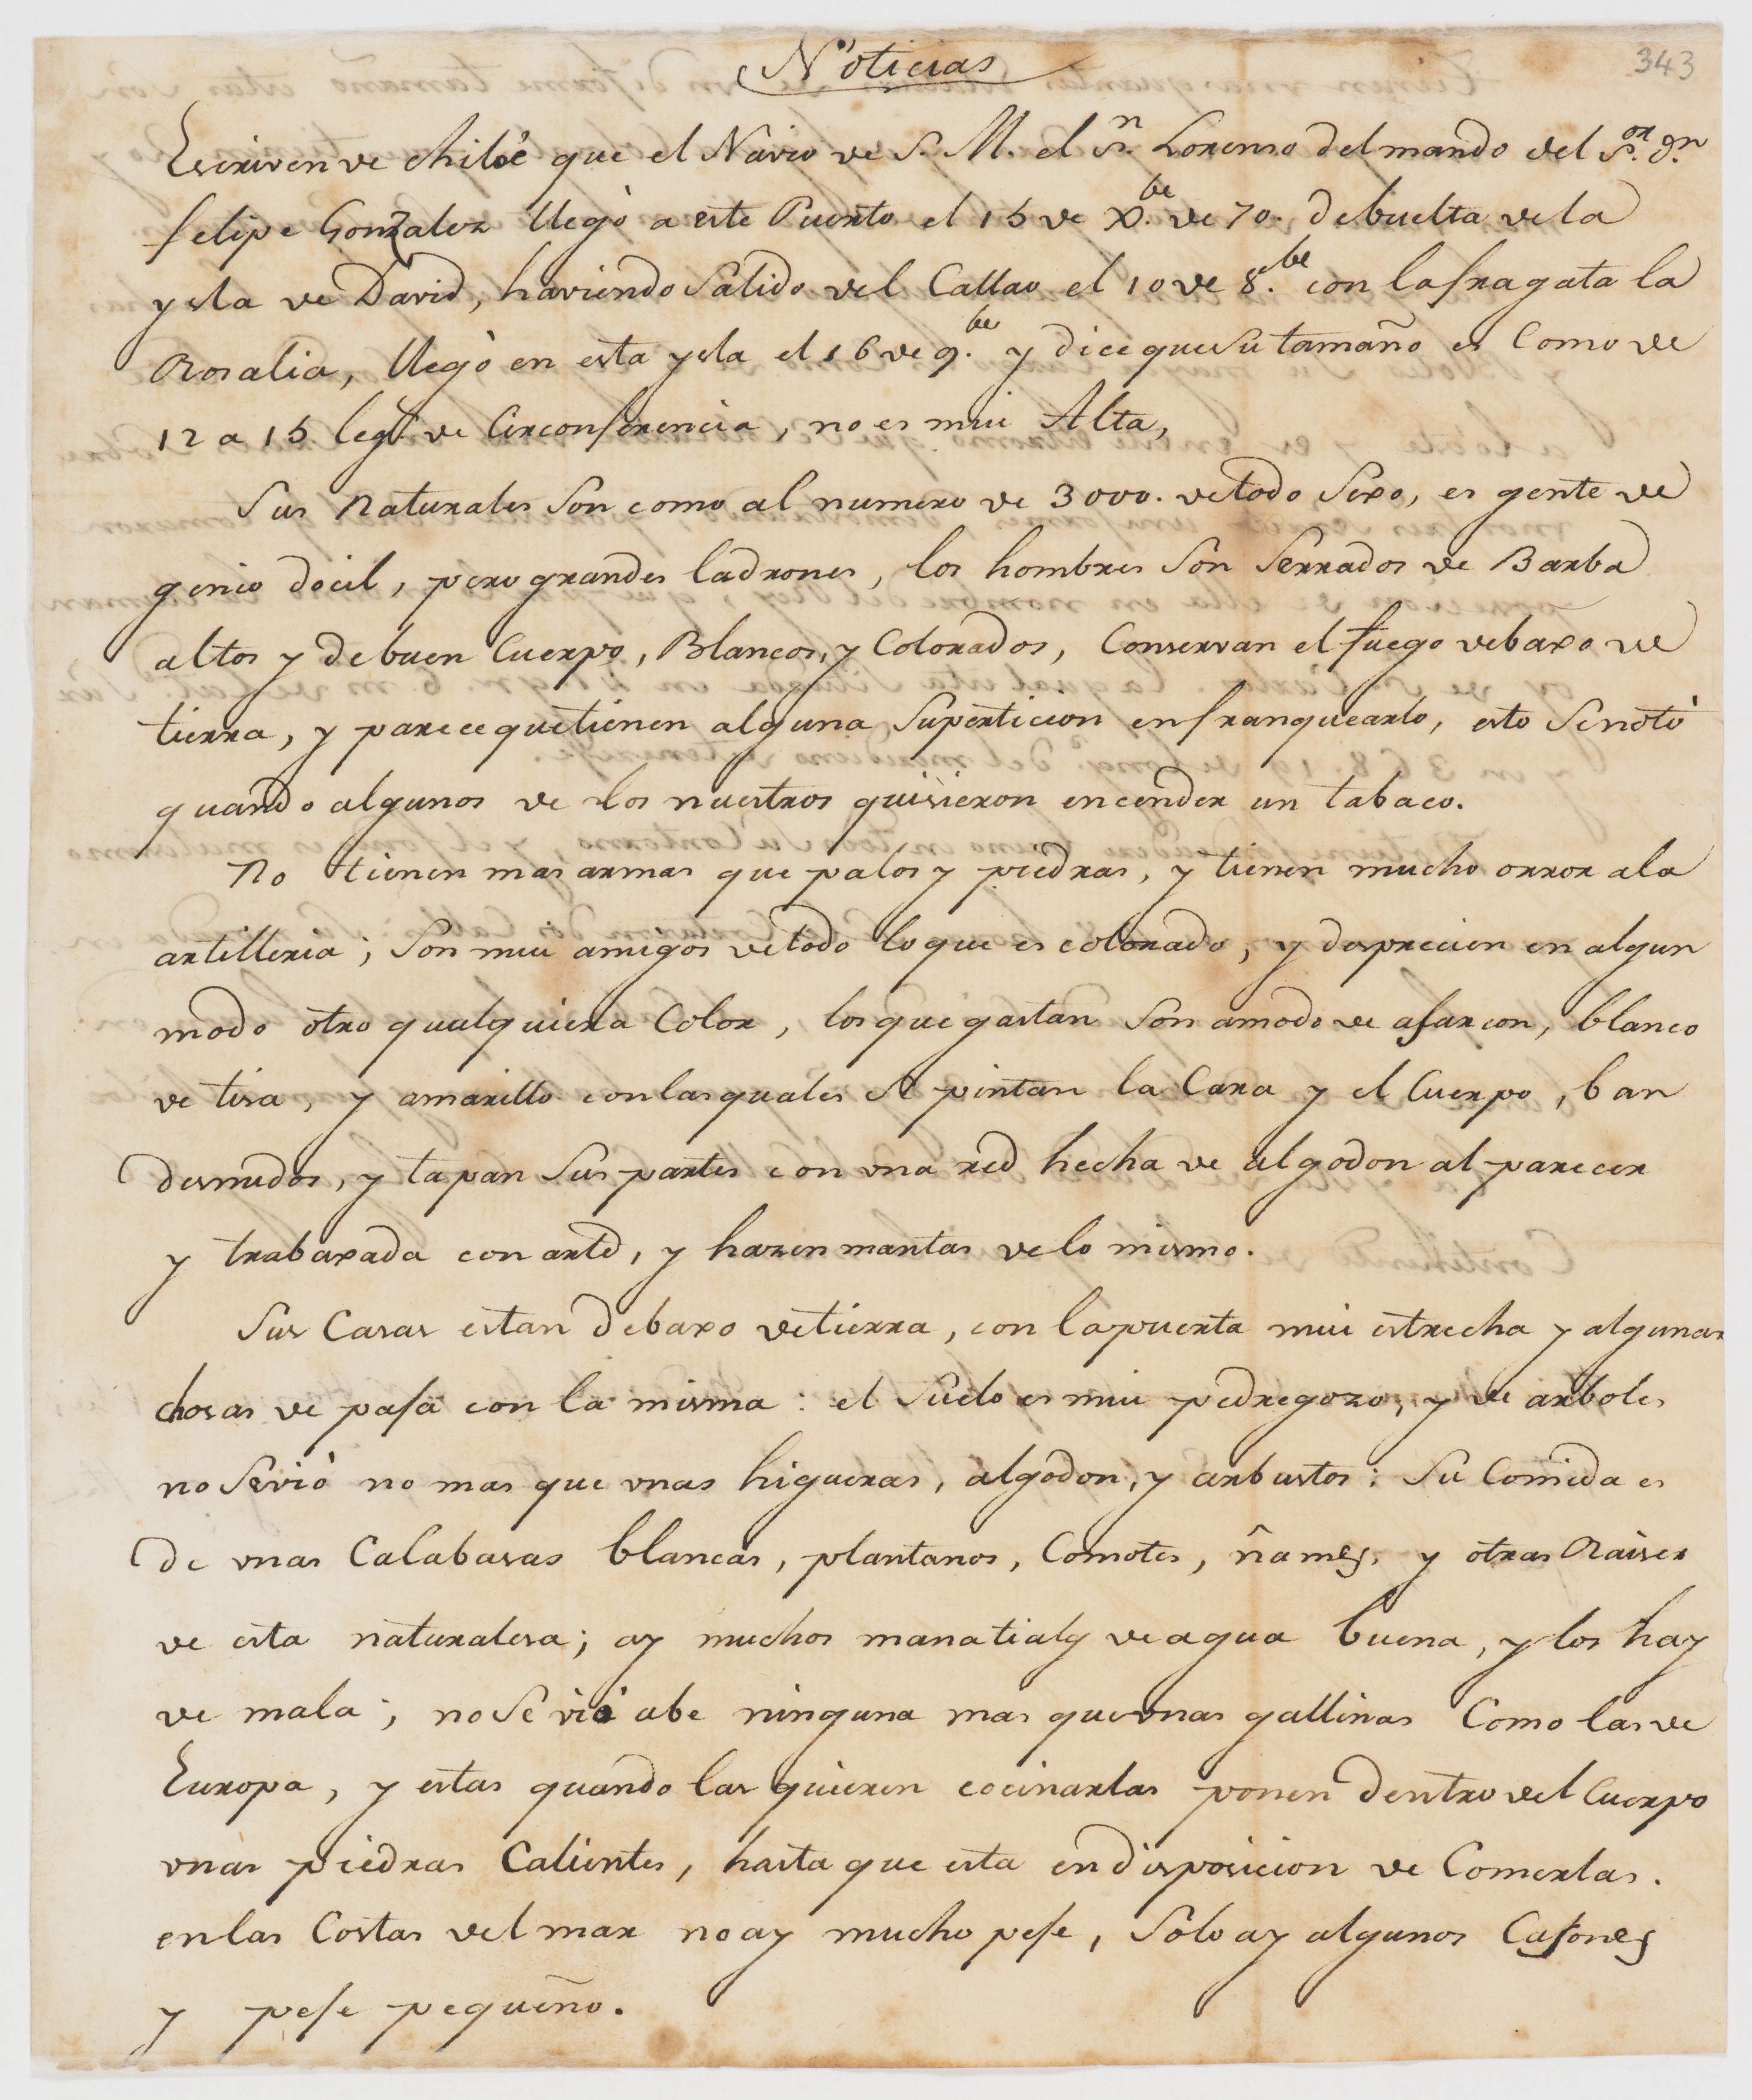 Noticias
343
Escriven de chiloé que el Navio de S. M. el Sn. Lorenzo del mando del Sor. Dn.
felipe Gonzalez llegò a este Puerto el 15 de Xbe. de 70. de buelta de la
ysla de David, haviendo Salido del Callao el 10 de 8be. con la fragata la
Rosalia, llegò en esta ysla el 16 de 9be. y dice que su tamaño es Como de
12 a 15 legs. de Circonferencia, no es mui Alta,
Sus Naturales Son como al numero de 3000. de todo Sexo, es gente de
genio docil, pero grandes ladrones, los hombres Son Serrados de Barba
altos y de buen Cuerpo, Blancos, y Colorados, Conservan el fuego debaxo de
tierra, y parece que tienen alguna Superticion en franquearlo, esto Se notò
quando algunos de los nuestros quisieron encender un tabaco.
No tienen mas armas que palos y piedras, y tienen mucho orror a la
artilleria; Son mui amigos de todo lo que es colorado, y desprecien en algun
modo otro qualquiera Color, los que gastan Son amodo de asarcon, blanco
de tisa, y amarillo con las quales Se pintan la Cara y el Cuerpo, ban
desnudos, y tapan Sus partes con una red hecha de algodon al parecer
y trabaxada con arte, y hazen mantas de lo mismo.
Sus Casas estan debaxo de tierra, con la puerta mui estrecha y algunas
chosas de pasa con la misma: el Suelo es mui pedregozo, y de arboles
no Se viò no mas que unas higueras, algodon, y arbustos: Su Comida es
de unas Calabasas blancas, plantanos, Comotes, ñames, y otras Raises
de esta naturalesa; ay muchos manatiales de agua buena, y los hay
de mala; no Se viò abe ninguna mas que unas gallinas Como las de
Europa, y estas quando las quieren cocinarlas ponen dentro del Cuerpo
unas piedras Calientes, hasta que esta en disposicion de Comerlas.
en las Costas del mar no ay mucho pese, Solo ay algunos Casones
y pese pequeño.